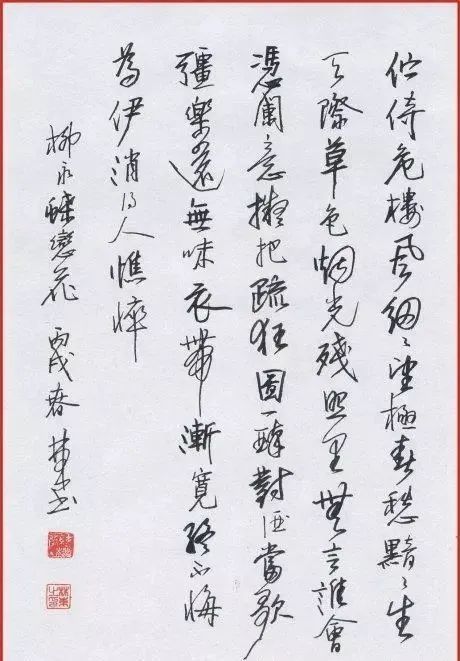 伫倚危樓風細々望極春愁黯々生
天際草色烟光殘照里無言誰會
憑闌意擬把疏狂圖一醉對酒當歌
彊樂還無味衣帶漸寬終不悔
為伊消得人憔悴
柳永蝶戀花 丙戌春